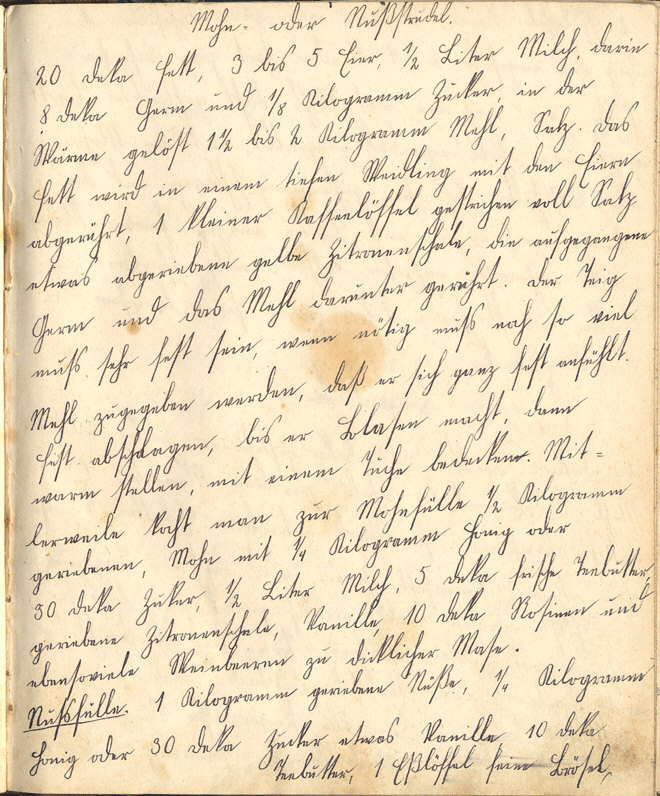 Mohn- oder Nußstrudel.
20 deka Fett, 3 bis 5 Eier, ½ Liter Milch, darin
8 deka Germ und ⅛ Kilogramm Zucker, in der
Wärme gelöst 1½ bis 2 Kilogramm Mehl, Salz. Das
Fett wird in einem tiefen Weidling mit den Eiern
abgerührt, 1 kleiner Kaffeelöffel gestrichen voll Salz
etwas abgeriebene gelbe Zitronenschale, die aufgegangene
Germ und das Mehl darunter gerührt. Der Teig
muss sehr fest sein, wenn nötig muss noch so viel
Mehl zugegeben werden, daß er sich ganz fest anfühlt.
Fest abschlagen, bis er Blasen macht, dann
warm stellen, mit einem Tuche bedecken. Mit=
lerweile kocht man zur Mohnfülle ½ Kilogramm
geriebenen, Mohn mit ¼ Kilogramm Honig oder
30 deka Zuker, ½ Liter Milch, 5 deka frische Teebutter,
geriebene Zitronenschale, Vanille, 10 deka Rosinen und
ebensoviele Weinbeeren zu dicklicher Mase.
Nussfülle. 1 Kilogramm geriebene Nüße, ¼ Kilogramm
Honig oder 30 deka Zucker etwas Vanille 10 deka
Teebutter, 1 Eßlöffel feine Brösel,